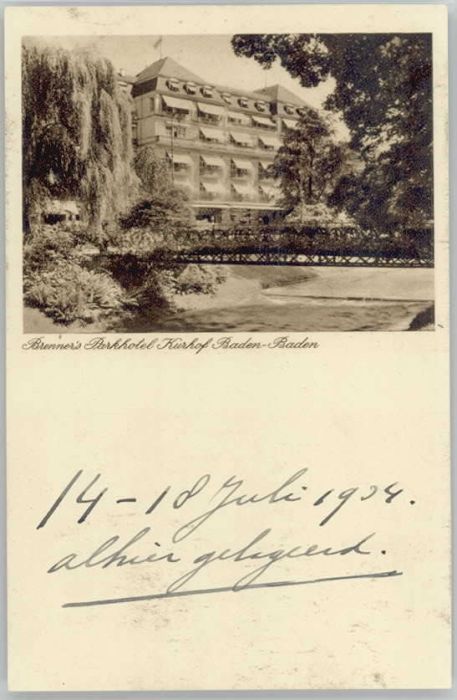 Brenner's Parkhotel Kurhof Baden-Baden
14-18 Juli 1934.
alhier gelogeerd.